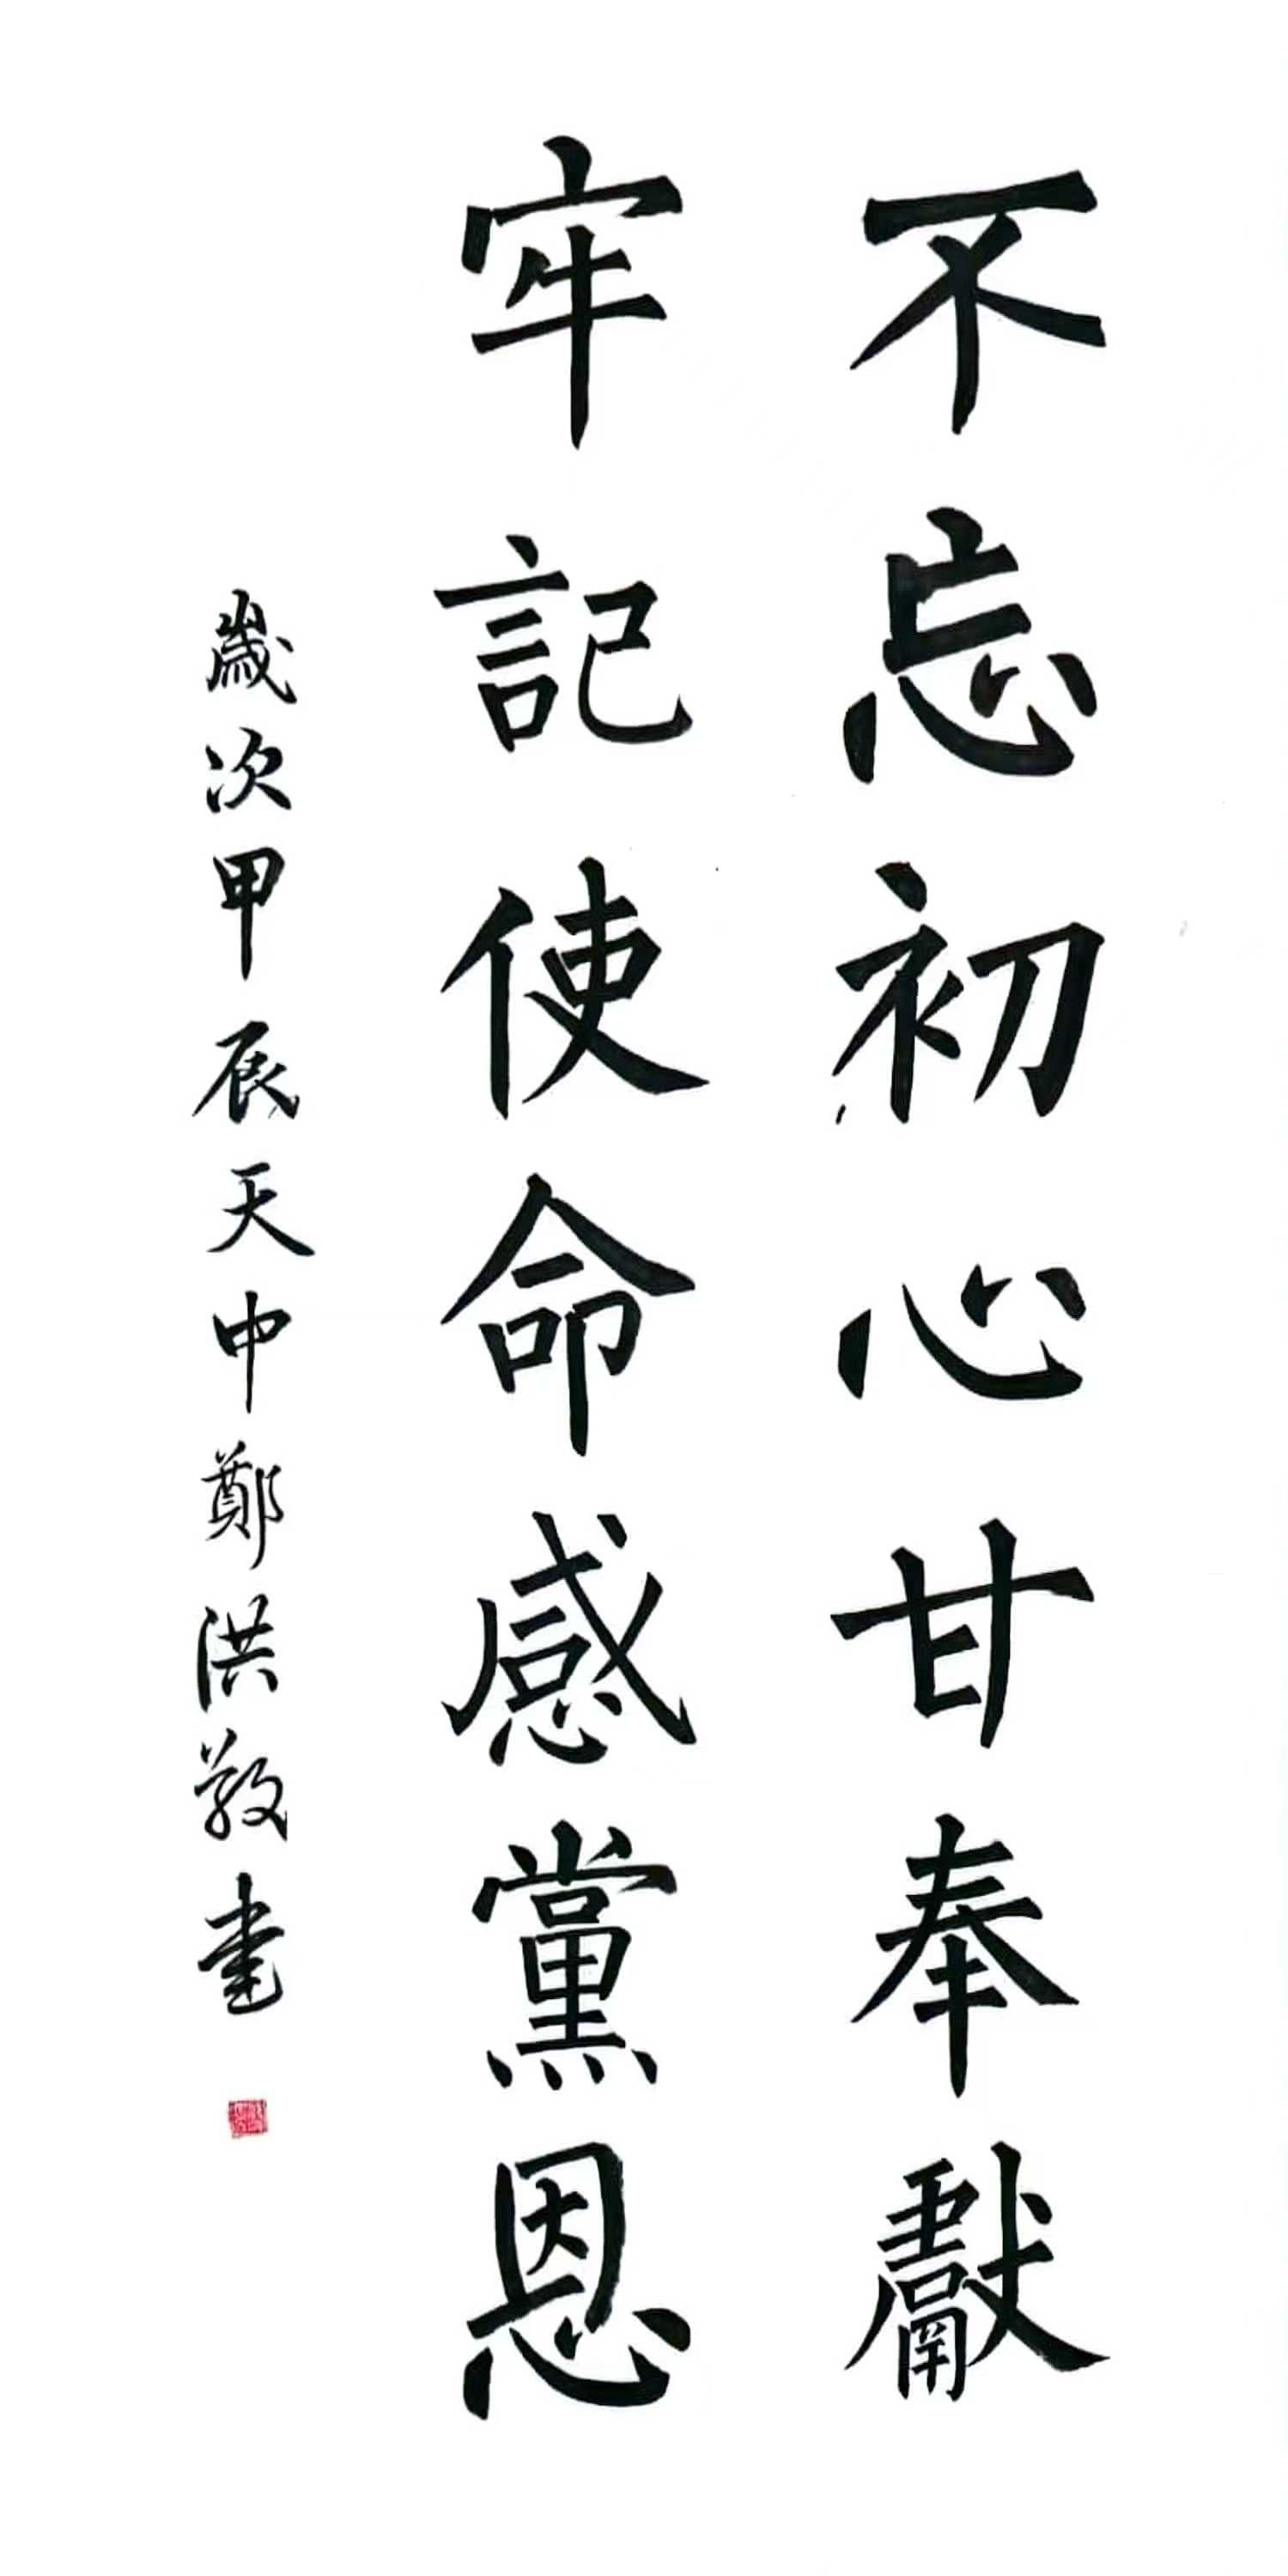 不忘初心甘奉獻
牢記使命感黨恩
歲次甲辰天中鄭洪敬書